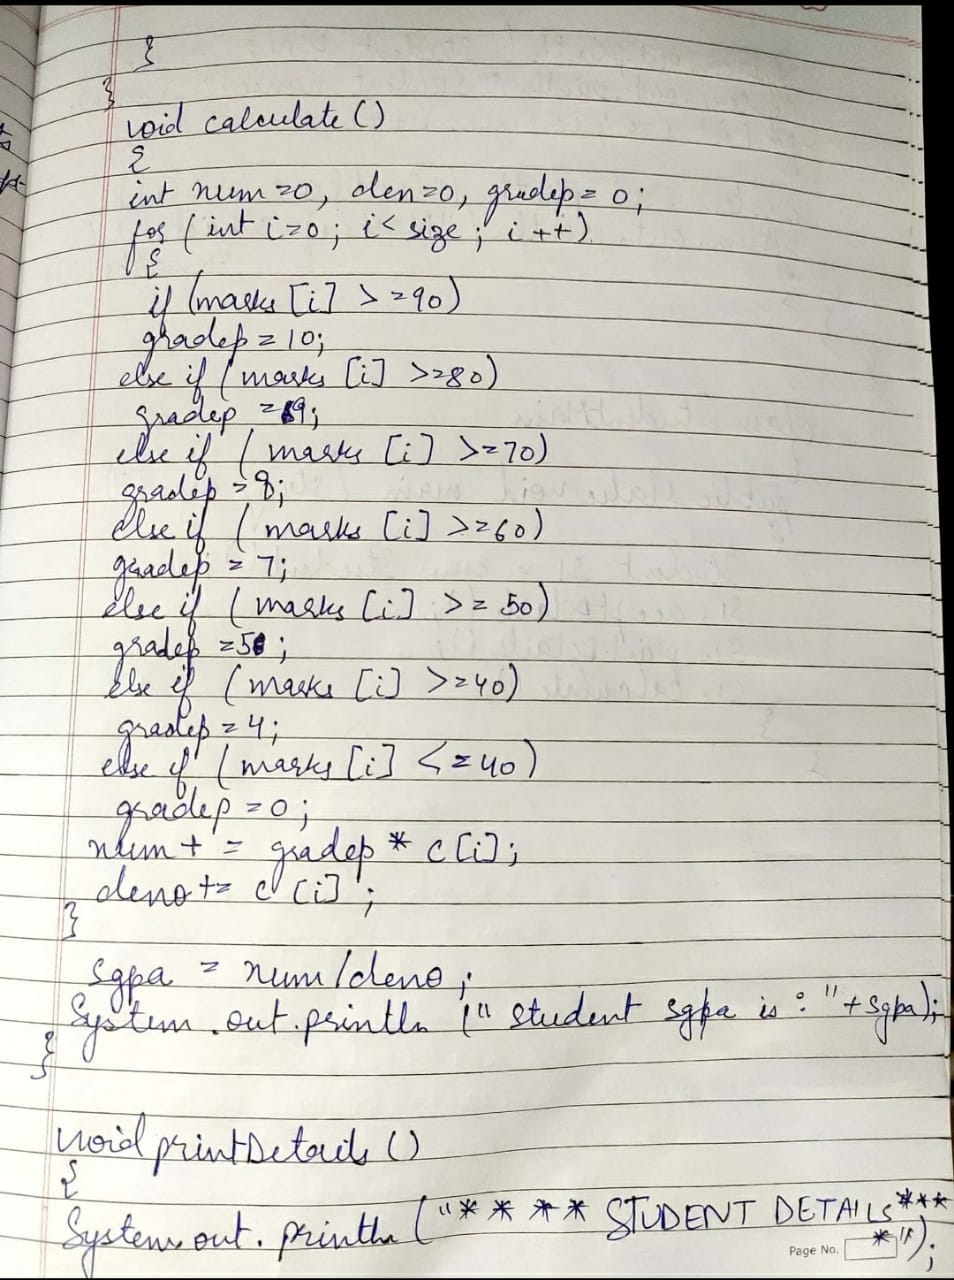 }
}
void calculate ()
{
int num=0, den=0, gradep= 0;
for (int i=0; i< size; i++)
{
if (marks [i] >=90)
gradep = 10;
else if (marks [i] >=80)
gradep =9;
else if (marks [i] >=70)
gradep = 8;
else if (marks [i] >=60)
gradep = 7;
else if (marks [i] >= 50)
gradep =5;
else if (marks [i] >=40)
gradep = 4;
else if (marks [i] <=40)
gradep = 0;
num+ = gradep * c[i];
deno += c [i];
}
sgpa = num/deno;
System.out.println (" student sgpa is : "+sgpa);
}
void printDetails ()
{
System.out.println ("**** STUDENT DETAILS***
*");
Page No.